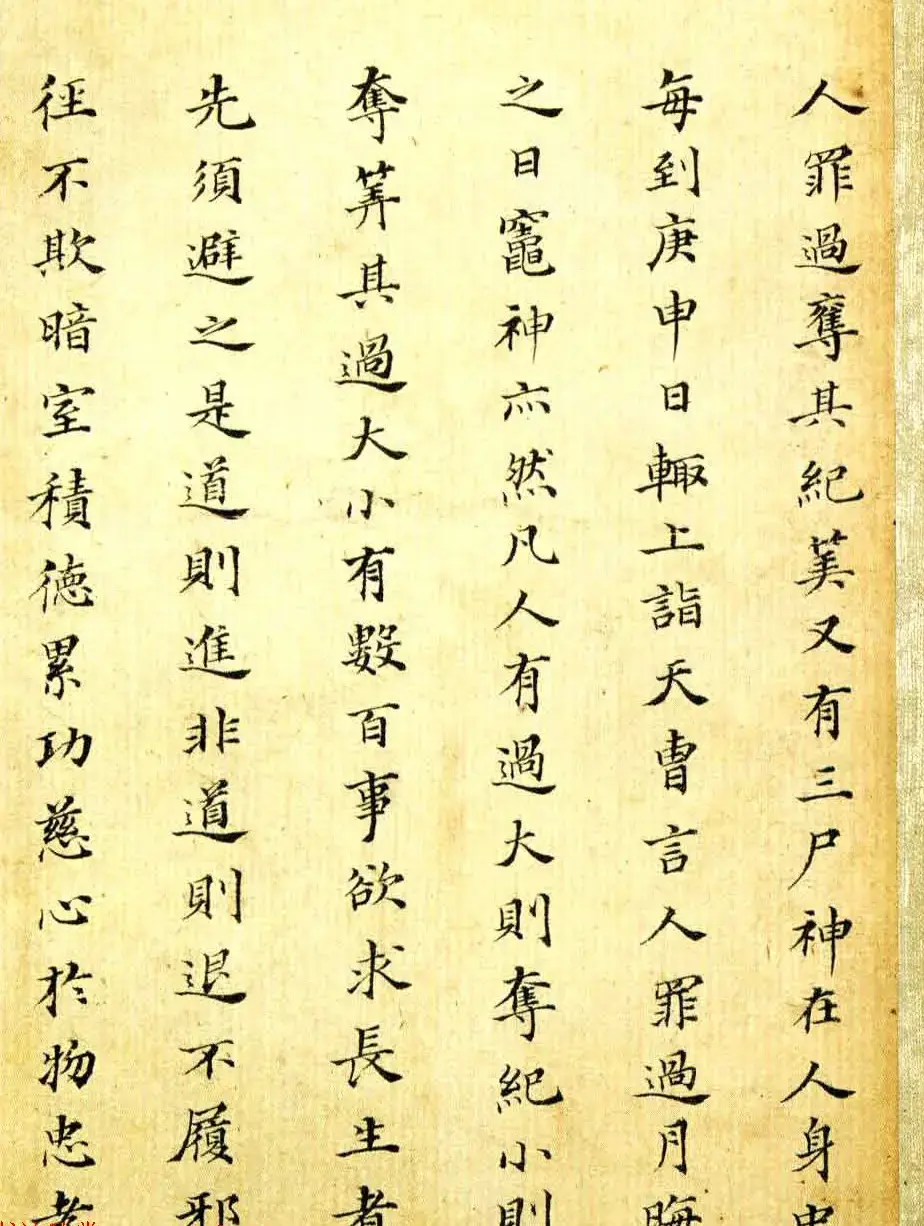 人罪過奪其紀筭又有三尸神在人身中
每到庚申日輙上詣天曹言人罪過月晦
之日竈神亦然凡人有過大則奪紀小則
奪筭其過大小有數百事欲求長生者
先須避之是道則進非道則退不履邪
徑不欺暗室積德累功慈心於物忠孝